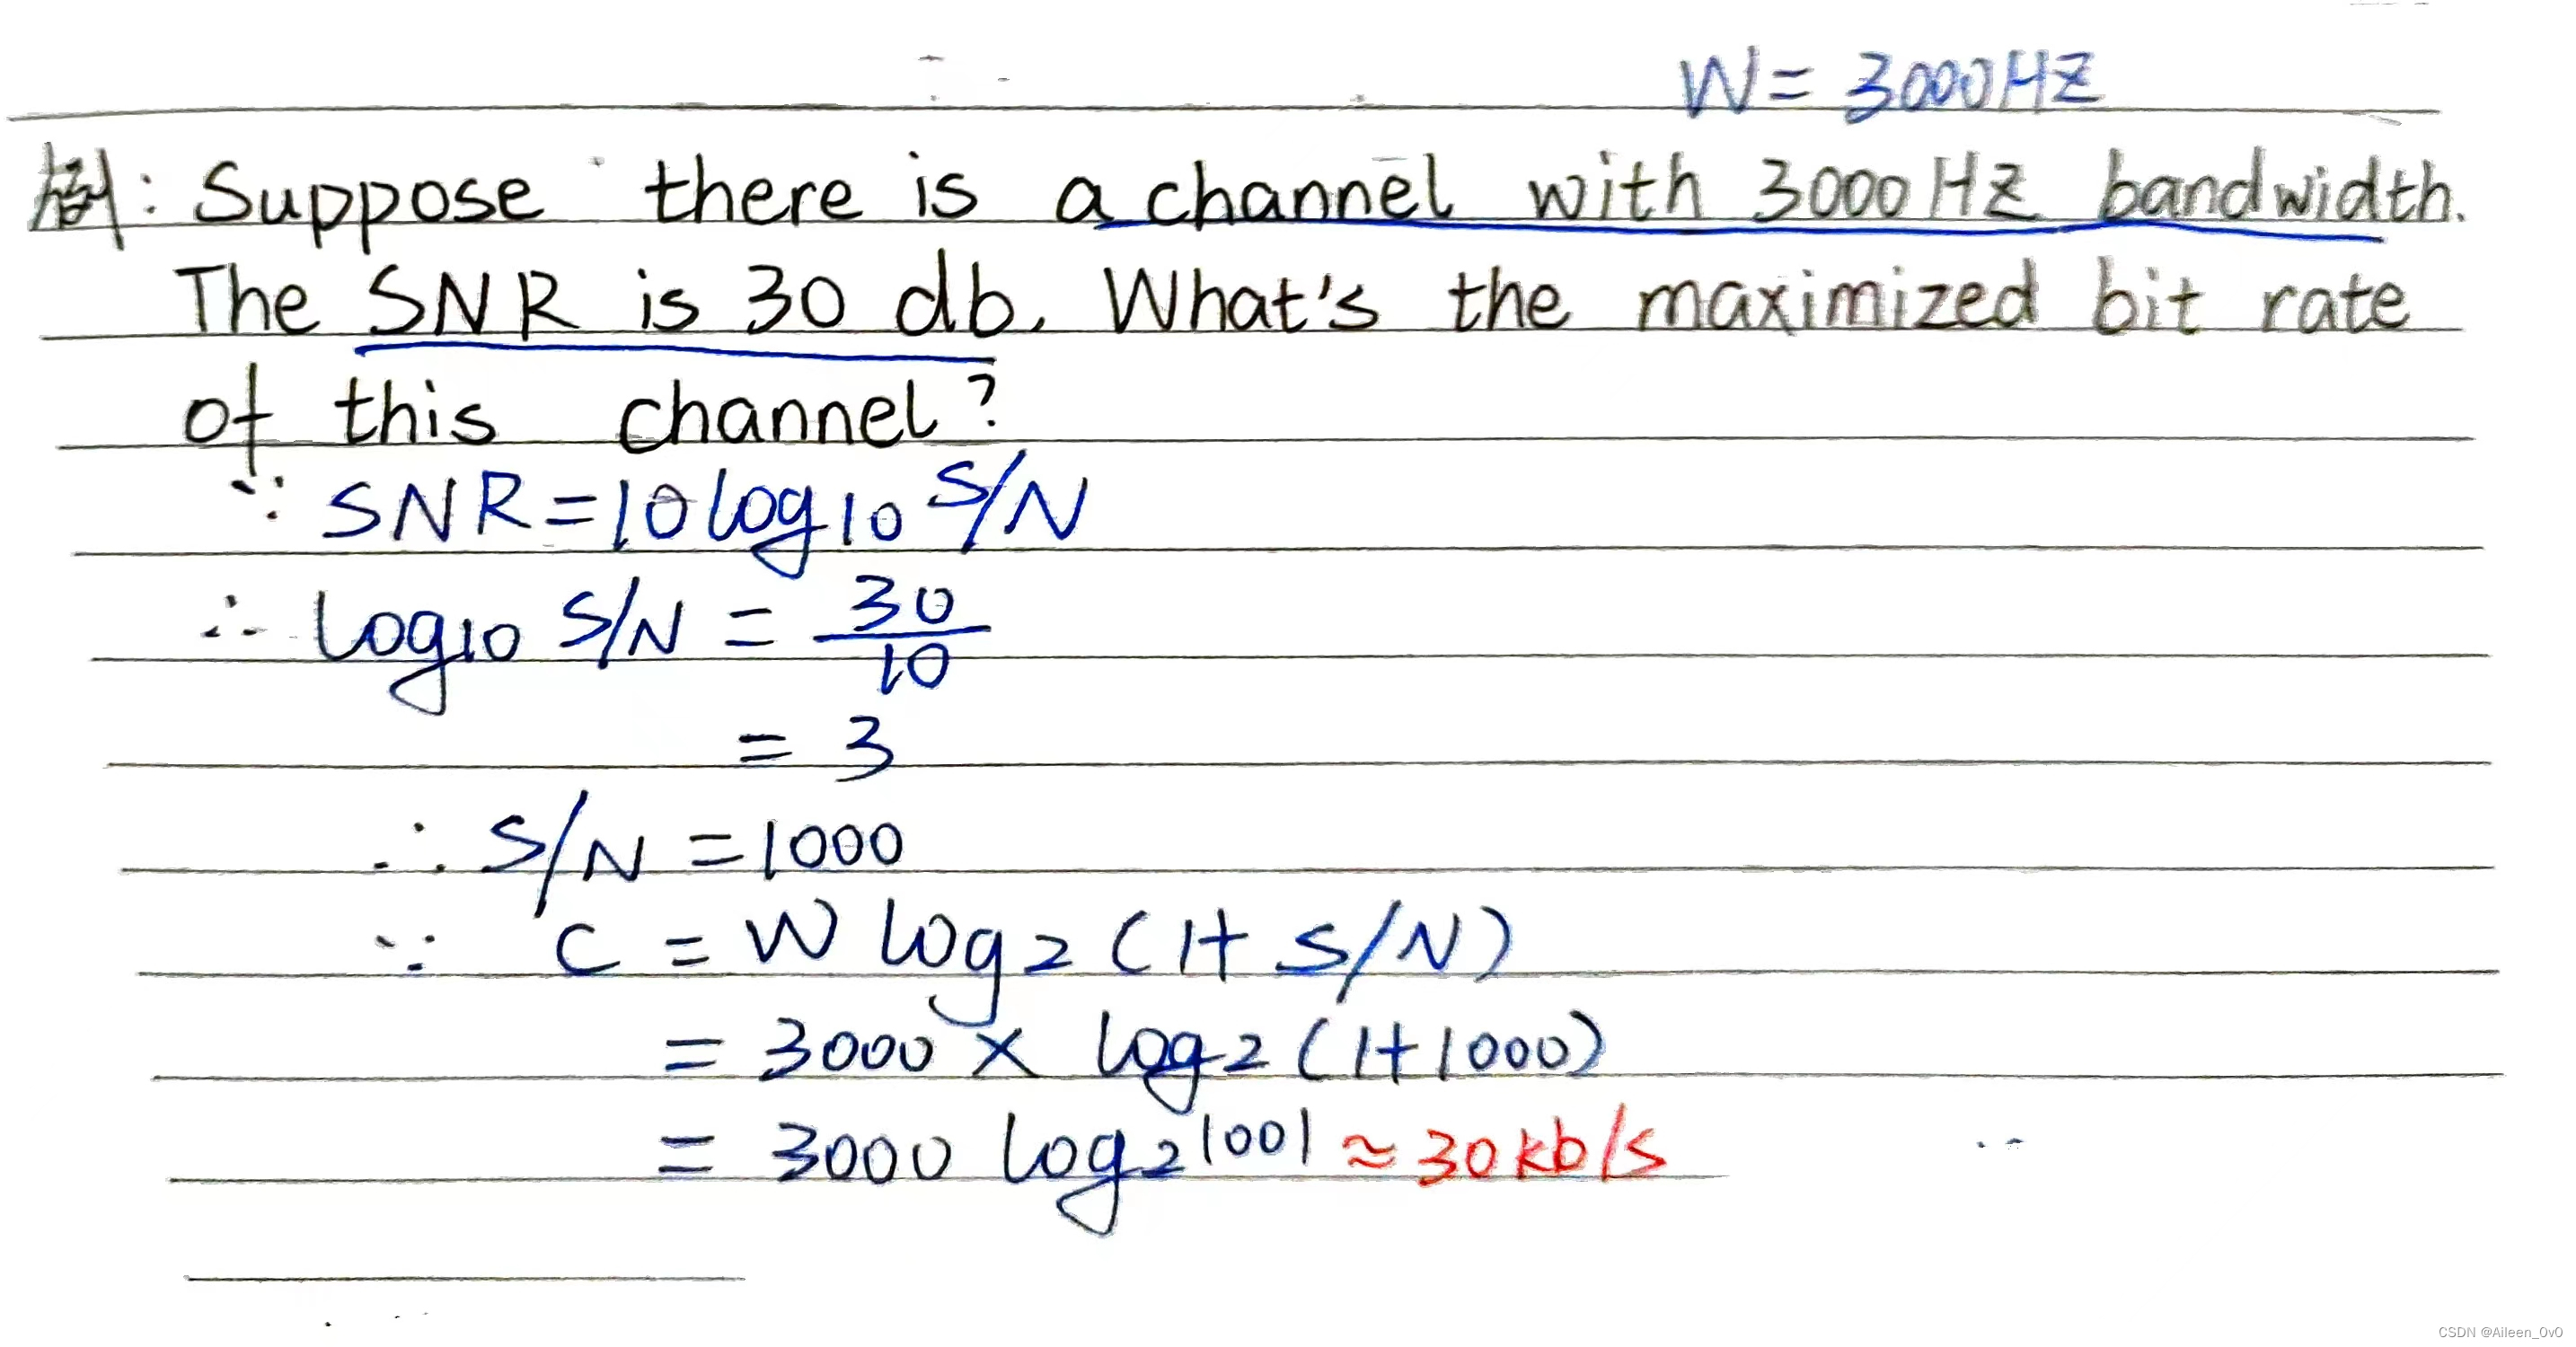 W = 3000HZ
例: Suppose there is a channel with 3000HZ bandwidth.
The SNR is 30 db. What's the maximized bit rate
of this channel?
∵ SNR = 10 log10 S/N
∴ log10 S/N = 30/10
= 3
∴ S/N = 1000
∵ C = W log2 (1+ S/N)
= 3000 × log2 (1+1000)
= 3000 log2 1001 ≈ 30kb/s
CSDN @Aileen_0v0